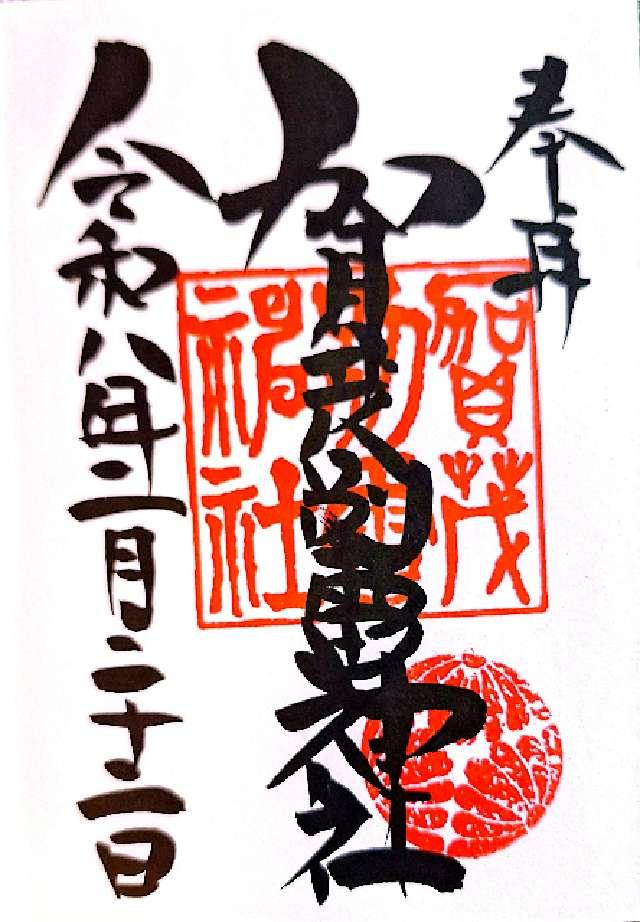 奉拝
賀茂別雷神社
令和八年二月二十二日
賀茂
別雷
神社